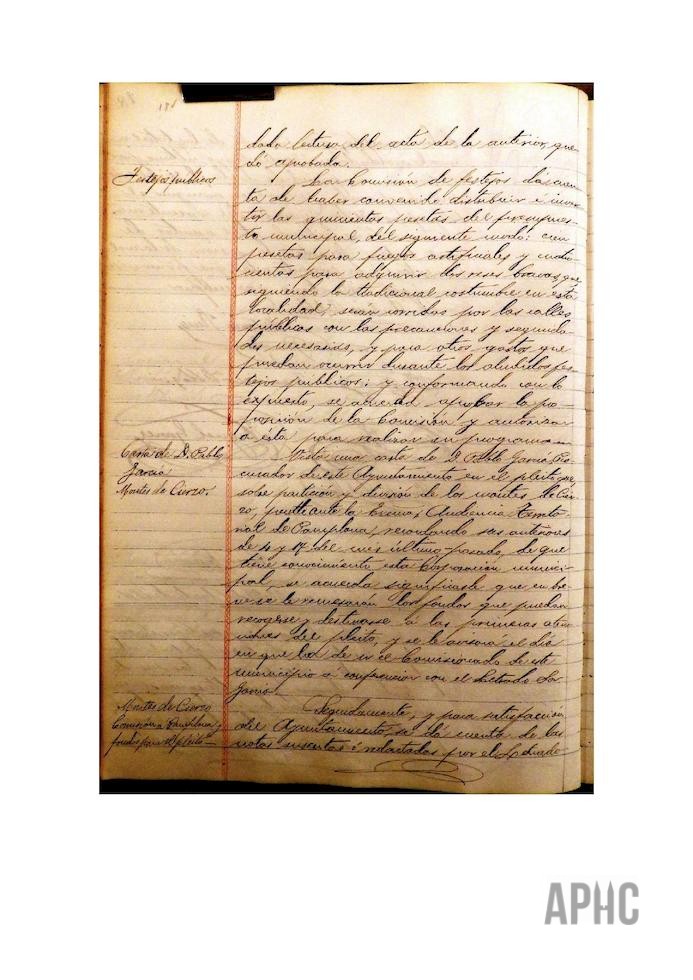 dada lectura del acta de la anterior, que
dó aprobada.
Festejos públicos
La Comisión de festejos dá cuen
ta de haber convenido distribuir é inver
tir las quinientas pesetas del presupues
to municipal, del siguiente modo: cien
pesetas para fuegos artificiales y cuatro
cientas para adquirir dos reses bravas, que
siguiendo la tradicional costumbre en esta
localidad, sean corridas por las calles
públicas con las precauciones y segurida
des necesarias, y para otros gastos que
puedan ocurrir durante los aludidos fes
tejos publicos; y conformando con lo
expuesto, se acuerda aprobar la pro
posición de la Comisión y autorizar
a ésta para realizar su programa.
Carta de D. Pablo
García
Montes de Cierzo.
Vista una carta de D. Pablo García Pro
curador de este Ayuntamiento en el pleito que,
sobre partición y división de los montes de Cier
zo, pende ante la Excma. Audiencia Territo
rial de Pamplona, recordando sus anteriores
de 4 y 17 del mes último pasado, de que
tiene conocimiento esta Corporación munici
pal, se acuerda significarle que en bre
ve se le remesarán los fondos que puedan
recogerse y destinarse á las primeras aten
ciones del pleito, y se le avisará el dia
en que ha de ir el Comisionado de este
municipio á conferenciar con el Letrado Sr
García
Montes de Cierzo
Comisión a Pamplona y
fondos para el pleito
Seguidamente, y para satisfacción
del Ayuntamiento, se dá cuenta de las
notas suscritas é redactadas por el Letrado
APHC